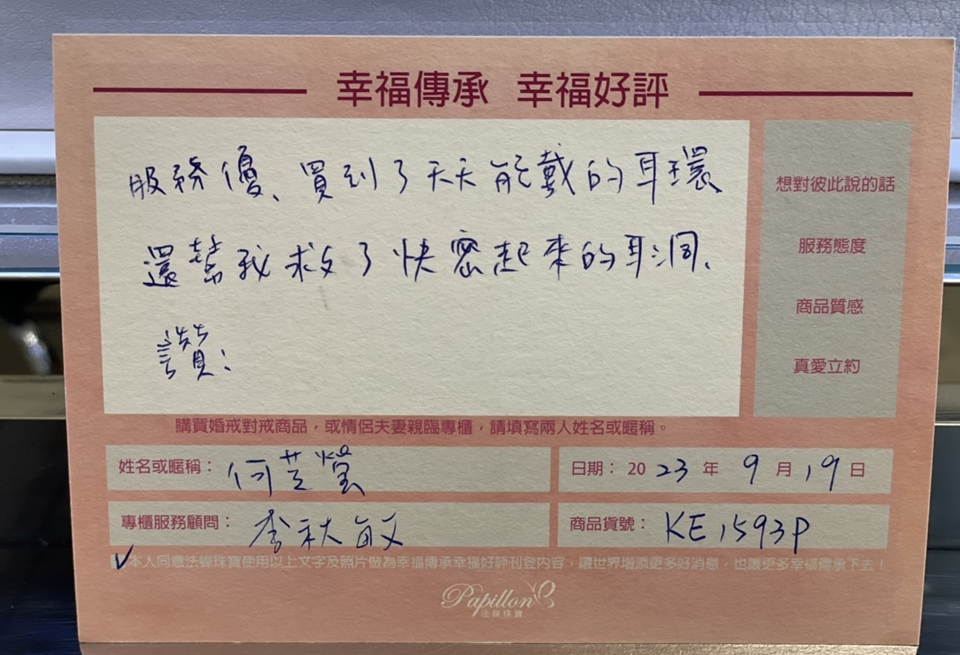 幸福傳承 幸福好評
服務優、買到了天天能戴的耳環
還幫我救了快密起來的耳洞、
讚!
想對彼此說的話
服務態度
商品質感
真愛立約
購買婚戒對戒商品，或情侶夫妻親臨專櫃，請填寫兩人姓名或暱稱。
姓名或暱稱： 何芝瑩
日期： 2023 年 9 月 19 日
專櫃服務顧問： 李秋敏
商品貨號： KE1593P
✓本人同意法蝶珠寶使用以上文字及照片做為幸福傳承幸福好評刊登內容，讓世界增添更多好消息，也讓更多幸福傳承下去！
Papillon
法蝶珠寶